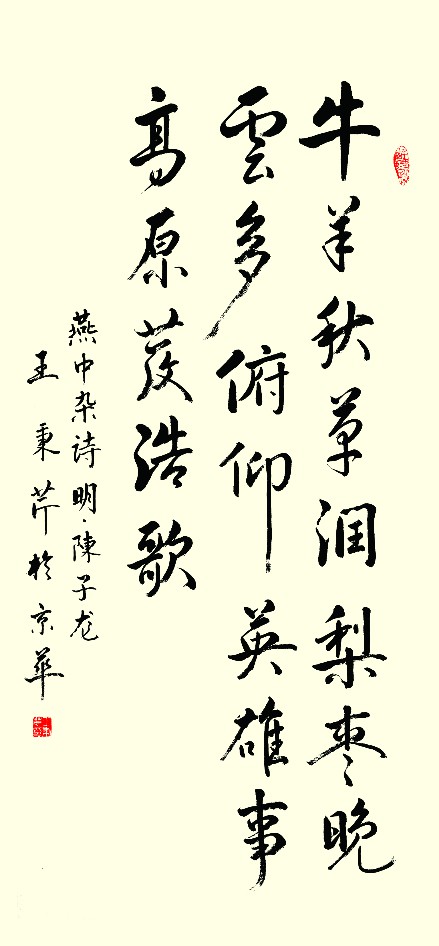 牛羊秋草润梨枣晚
雲多俯仰英雄事
高原发浩歌
燕中杂诗明·陳子龙
王秉芹於京華